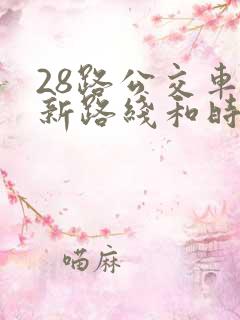 28路公交車
新路綫和時
喵麻